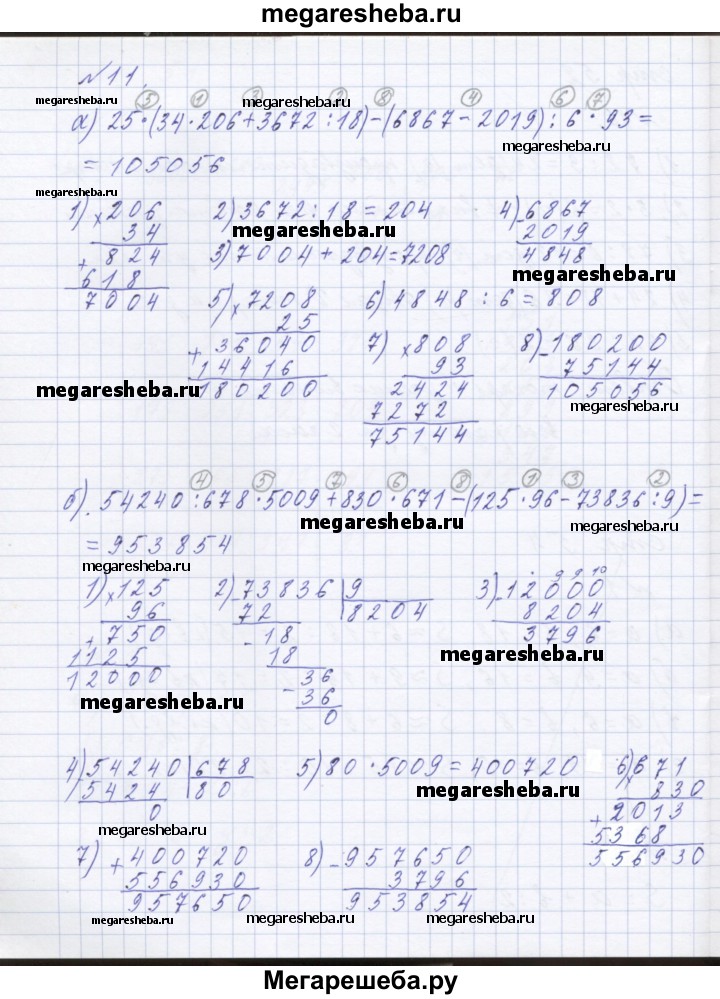 megaresheba.ru
№11.
megaresheba.ru
5 1 3 2 8 4 6 7
megaresheba.ru
а) 25·(34·206+3672:18)-(6867-2019):6·93=
megaresheba.ru
=105056
megaresheba.ru
1) ×206
34
+ 824
618
7004
2) 3672:18=204
megaresheba.ru
3) 7004+204=7208
4) -6867
2019
4848
megaresheba.ru
5) ×7208
25
+ 36040
14416
180200
6) 4848:6=808
7) ×808
93
2424
7272
75144
8) -180200
75144
105056
megaresheba.ru
megaresheba.ru
4 5 7 6 8 1 3 2
б). 54240:678·5009+830·671-(125·96-73836:9)=
megaresheba.ru
megaresheba.ru
=953854
megaresheba.ru
1) ×125
96
+ 750
1125
12000
2) -73836 9
72 8204
-18
18
-36
36
0
3) . 9 9 10
-12000
8204
3796
megaresheba.ru
megaresheba.ru
4) -54240 678
5424 80
0
5) 80·5009=400720
megaresheba.ru
6) ×671
830
+ 2013
5368
556930
megaresheba.ru
7) +400720
556930
957650
8) -957650
3796
953854
megaresheba.ru
megaresheba.ru
megaresheba.ru
Мегарешеба.ру